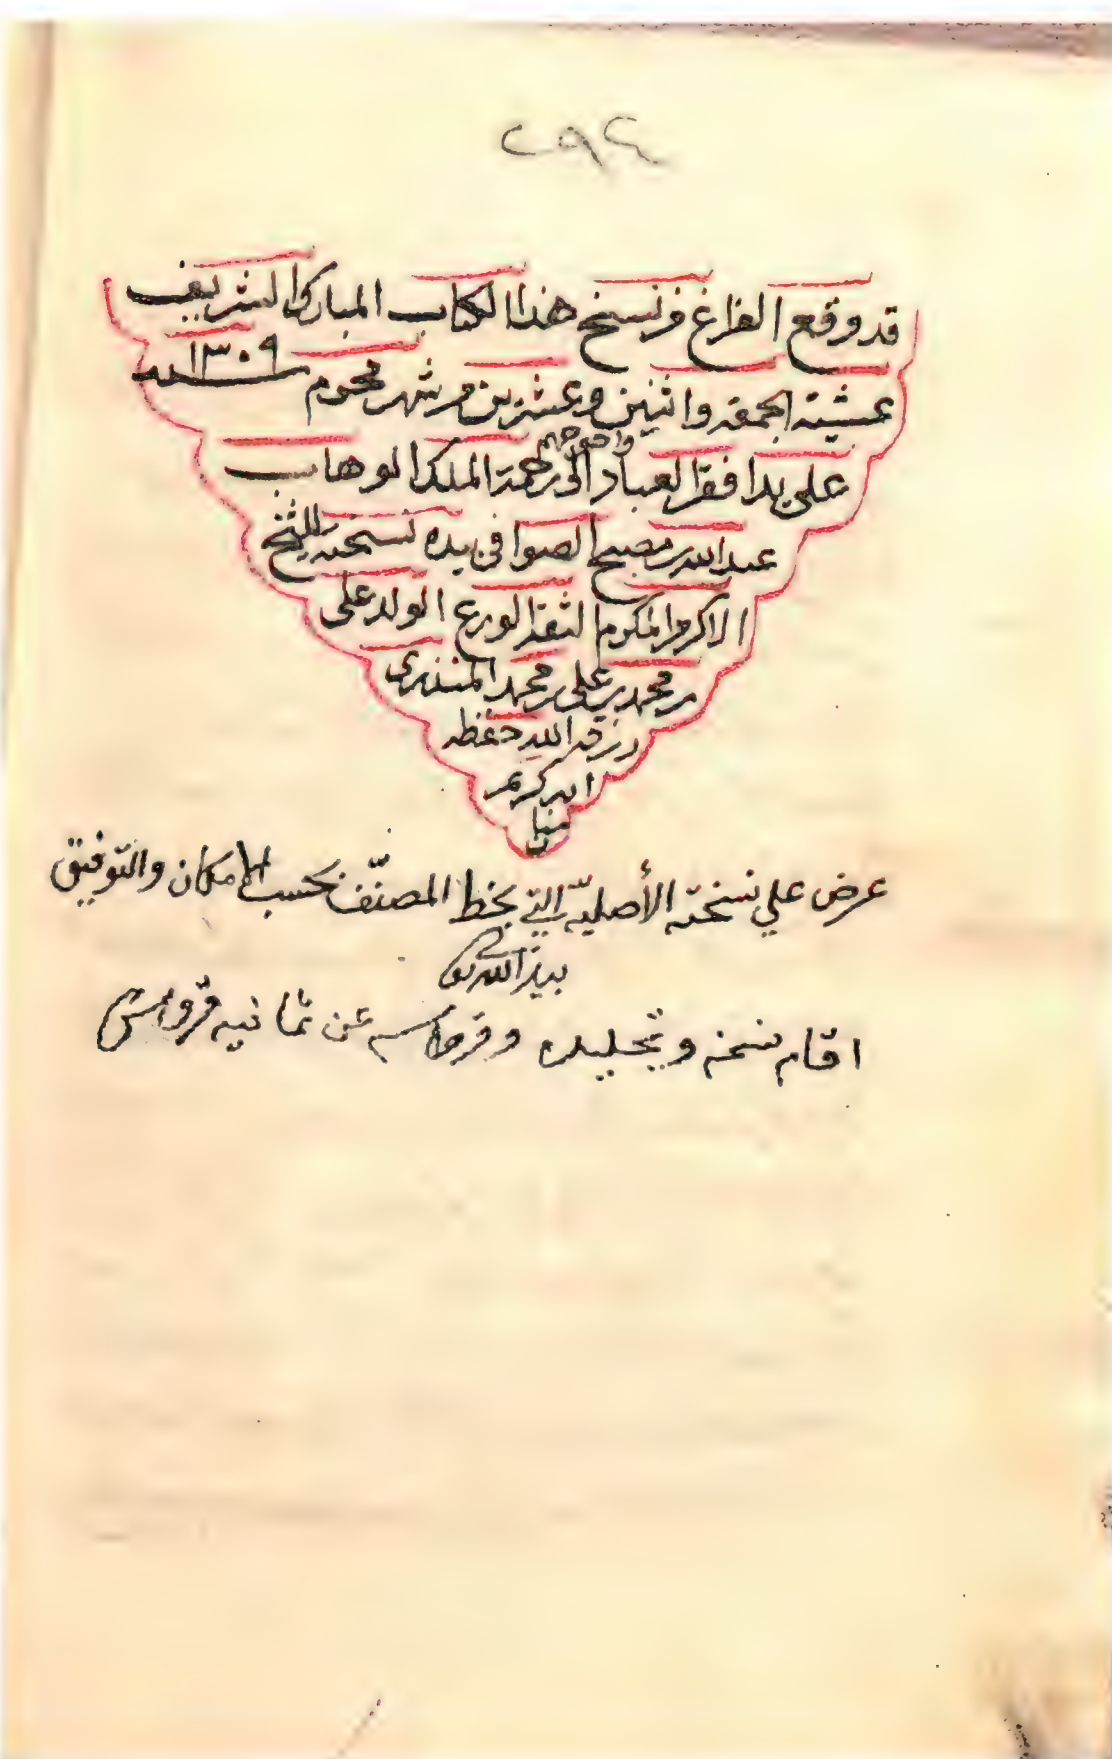 ٢٩٤
قد وقع الفراغ من نسخ هذا الكتاب المبارك الشريف
عشية الجمعة واثنين وعشرين من شهر محرم سنة ١٣٠٩
على يد افقر العباد واحوجهم الى رحمة الملك الوهاب
عبد الله بن مصبح الصوافي بيده نسخته للشيخ
الاكرم المكرم الثقة الورع الولد علي
بن محمد بن علي بن محمد المنذري
رزقه الله حفظه
انه كريم
منان
عرض على نسخته الأصليّة التي بخط المصنّف بحسب الامكان والتوفيق
بيد الله
اقام نسخه وتجليده وقرطاسه عن ثمانيه قروش